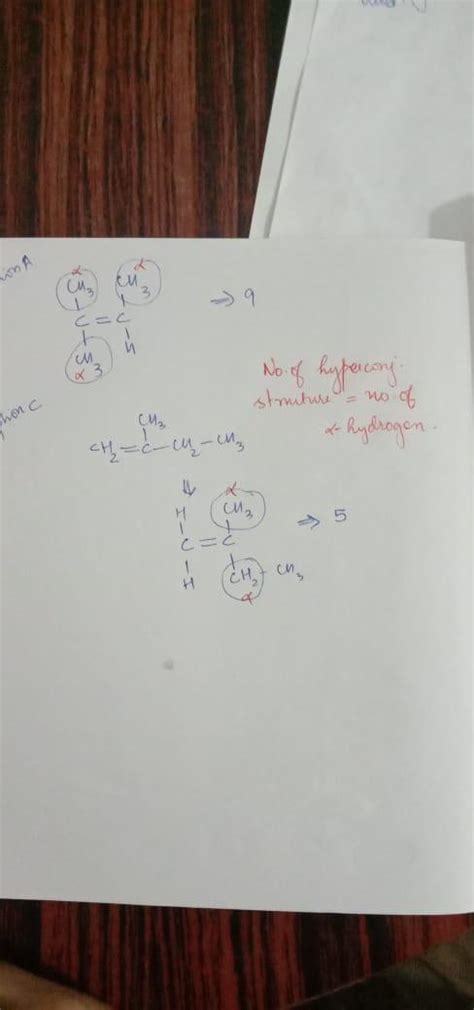 α α
CH3 CH3
C=C ⇒ 9
CH3 H
α
No. of hyperconj.
struture = no. of
α-hydrogen.
CH3
CH2=C-CH2-CH3
⇓
α
H CH3
C=C ⇒ 5
H CH2-CH3
α